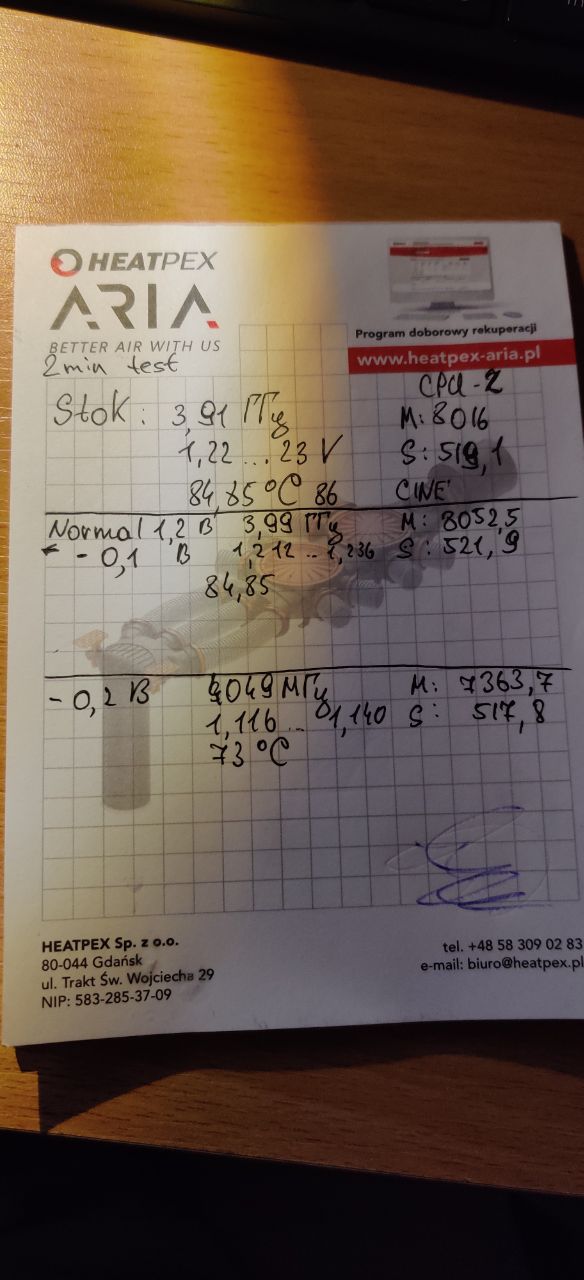 HEATPEX
ARIA
BETTER AIR WITH US
Program doborowy rekuperacji
www.heatpex-aria.pl
2min test
CPU-Z
Stok: 3,91 ГГц M: 8016
1,22...23 V S: 519,1
84,85°C 86 CINE
Normal 1,2 В 3,99 ГГц M: 8052,5
- 0,1 В 1,212 .. 1,236 S: 521,9
84,85
- 0,2 В 4049 МГц M: 7363,7
1,116 .. 1,140 S: 517,8
73 °C
HEATPEX Sp. z o.o.
80-044 Gdańsk
ul. Trakt Św. Wojciecha 29
NIP: 583-285-37-09
tel. +48 58 309 02 83
e-mail: biuro@heatpex.pl